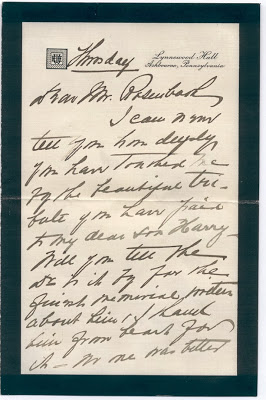 Lynnewood Hall
Ashbourne, Pennsylvania
Thursday
Dear Mr. Rosenbach
I can never
tell you how deeply
you have touched me
by the beautiful tri-
bute you have paid
to my dear son Harry—
Will you tell the
it by for the
finest memorial, written
about him & thank
him from heart for
it — no one was better